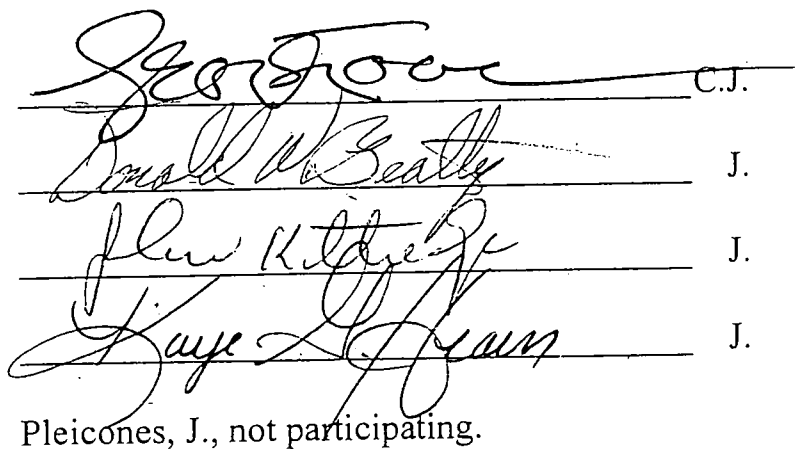 C.J.
Donald W. Beatty J.
John Kittredge J.
Kaye G. Hearn J.
Pleicones, J., not participating.